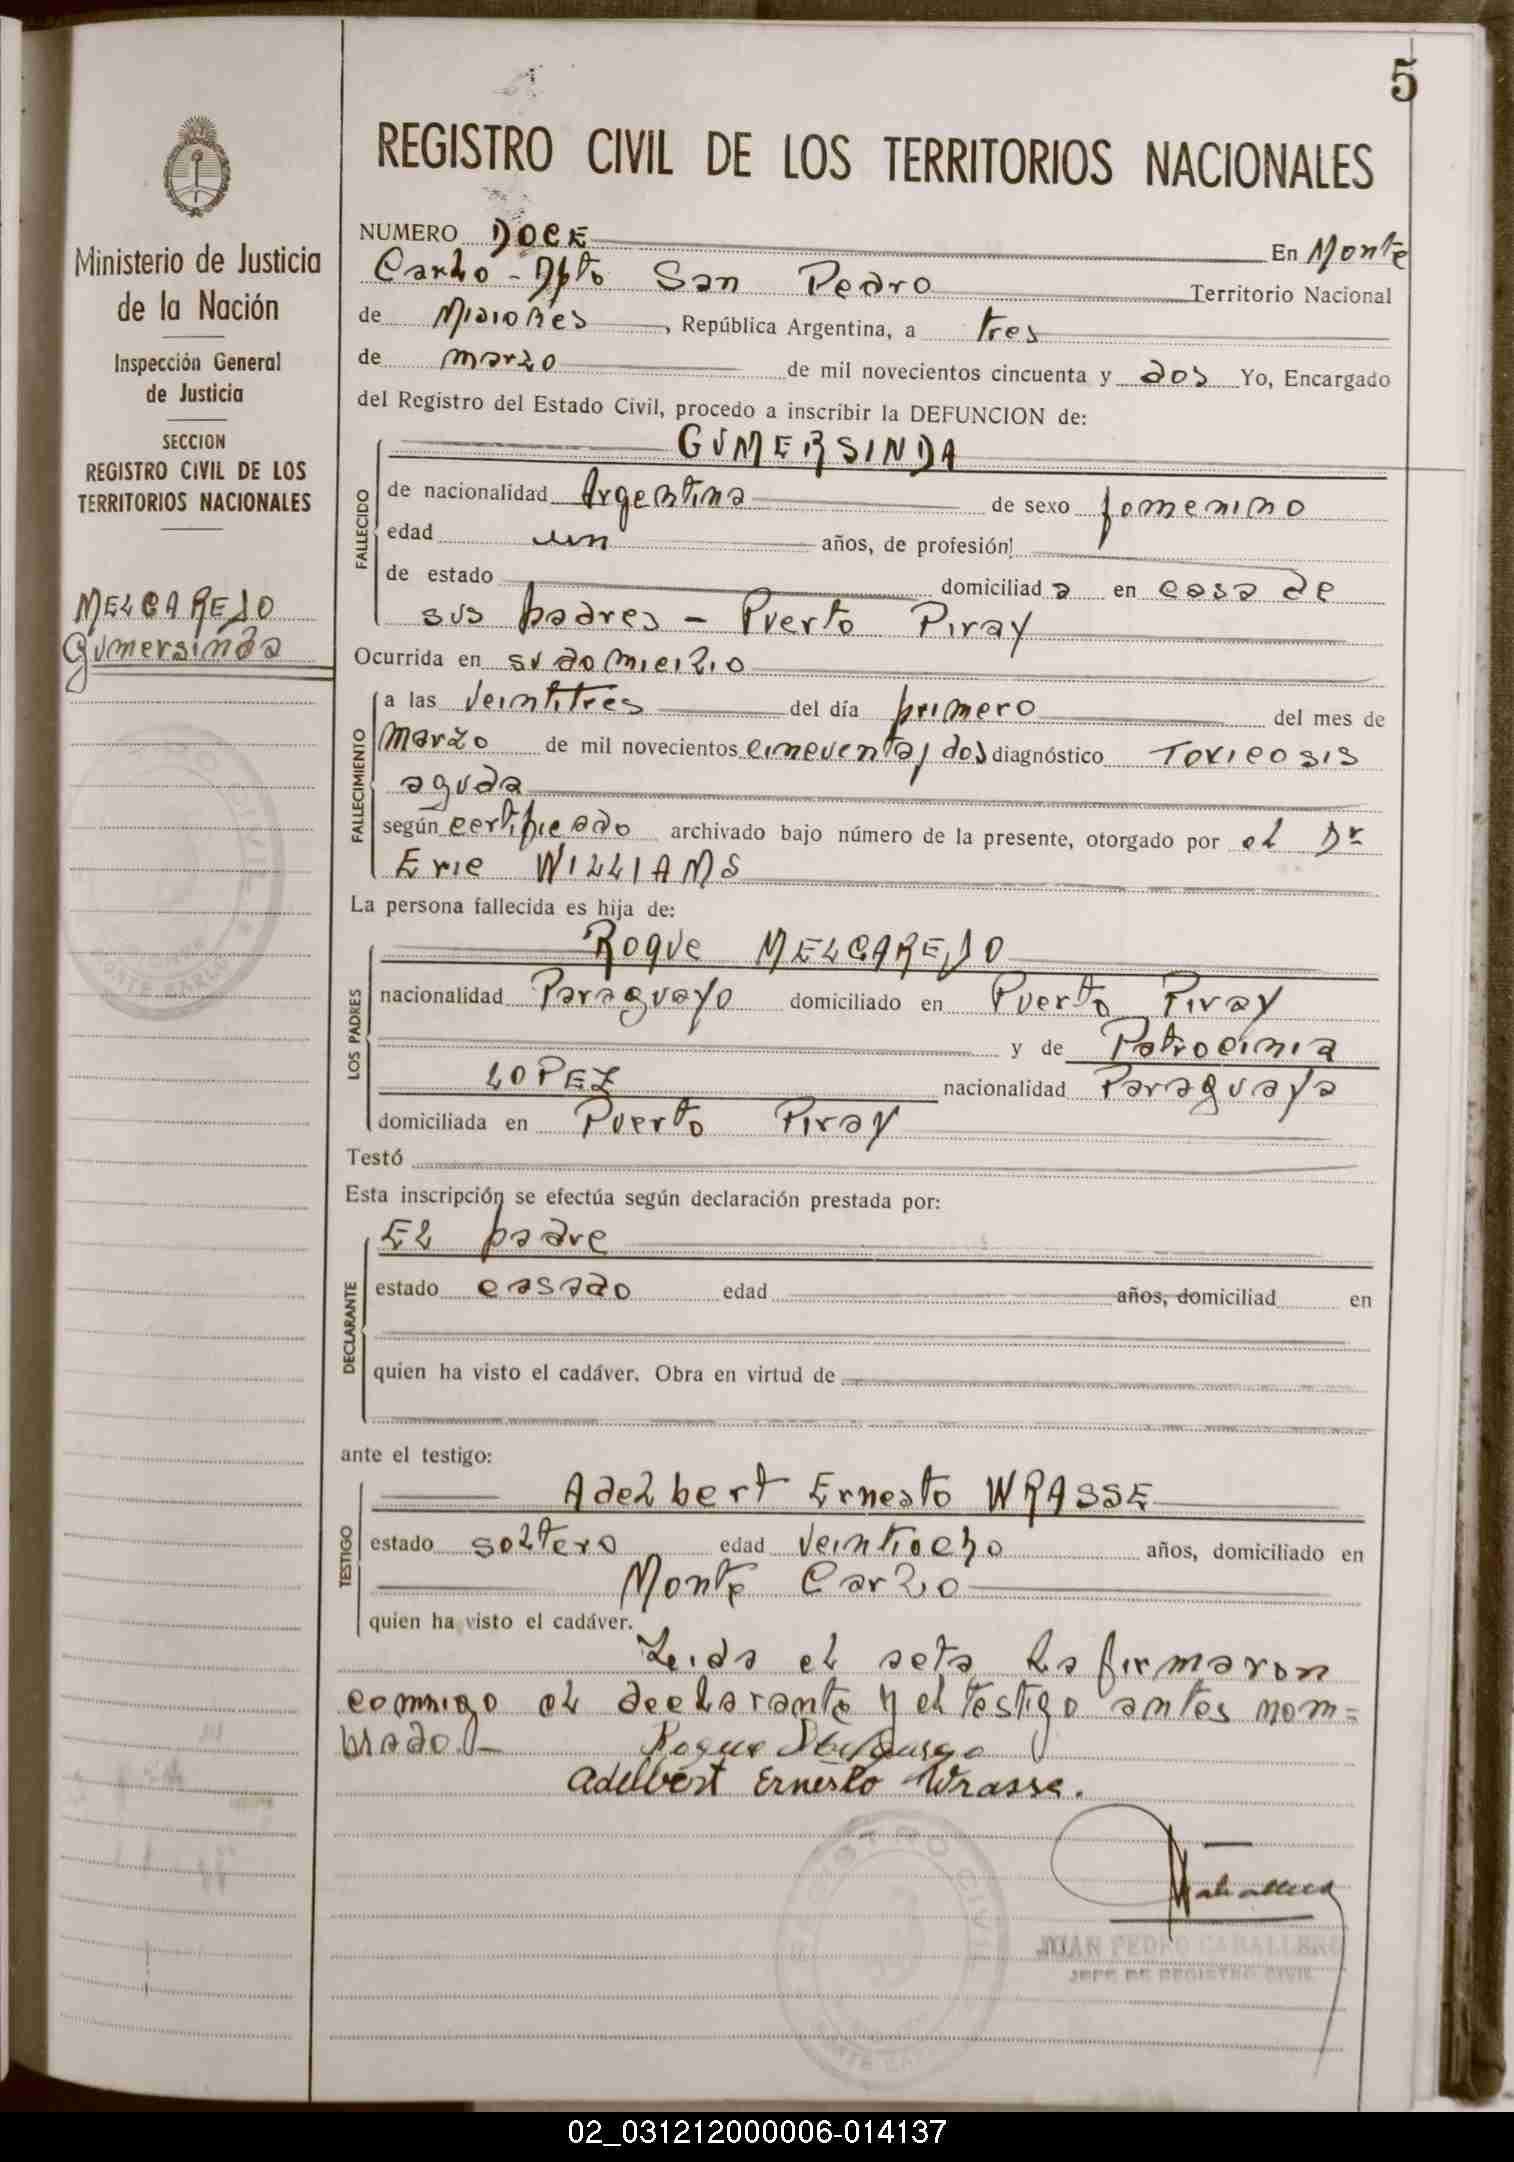 5
REGISTRO CIVIL DE LOS TERRITORIOS NACIONALES
Ministerio de Justicia
de la Nación
Inspección General
de Justicia
SECCION
REGISTRO CIVIL DE LOS
TERRITORIOS NACIONALES
MELGAREJO
Gumersinda
NUMERO DOCE En Monte
Carlo - Dpto San Pedro Territorio Nacional
de Misiones, República Argentina, a tres
de marzo de mil novecientos cincuenta y dos Yo, Encargado
del Registro del Estado Civil, procedo a inscribir la DEFUNCION de:
GUMERSINDA
FALLECIDO
de nacionalidad Argentina de sexo femenino
edad un años, de profesión
de estado domiciliada en casa de
sus padres - Puerto Piray
Ocurrida en su domicilio
FALLECIMIENTO
a las veintitres del día primero del mes de
marzo de mil novecientos cincuenta y dos diagnóstico Toxicosis
aguda
según certificado archivado bajo número de la presente, otorgado por el Dr
Eric WILLIAMS
La persona fallecida es hija de:
LOS PADRES
Roque MELGAREJO
nacionalidad Paraguayo domiciliado en Puerto Piray
y de Patrocinia
LOPEZ nacionalidad Paraguaya
domiciliada en Puerto Piray
Testó
Esta inscripción se efectúa según declaración prestada por:
DECLARANTE
El padre
estado casado edad años, domiciliad en
quien ha visto el cadáver. Obra en virtud de
ante el testigo:
TESTIGO
Adelbert Ernesto WRASSE
estado soltero edad veintiocho años, domiciliado en
Monte Carlo
quien ha visto el cadáver.
Leida el acta la firmaron
conmigo el declarante y el testigo antes nom=
brado.-
Roque
Adelbert Ernesto Wrasse.
JUAN PEDRO CABALLERO
JEFE DE REGISTRO CIVIL
02_031212000006-014137